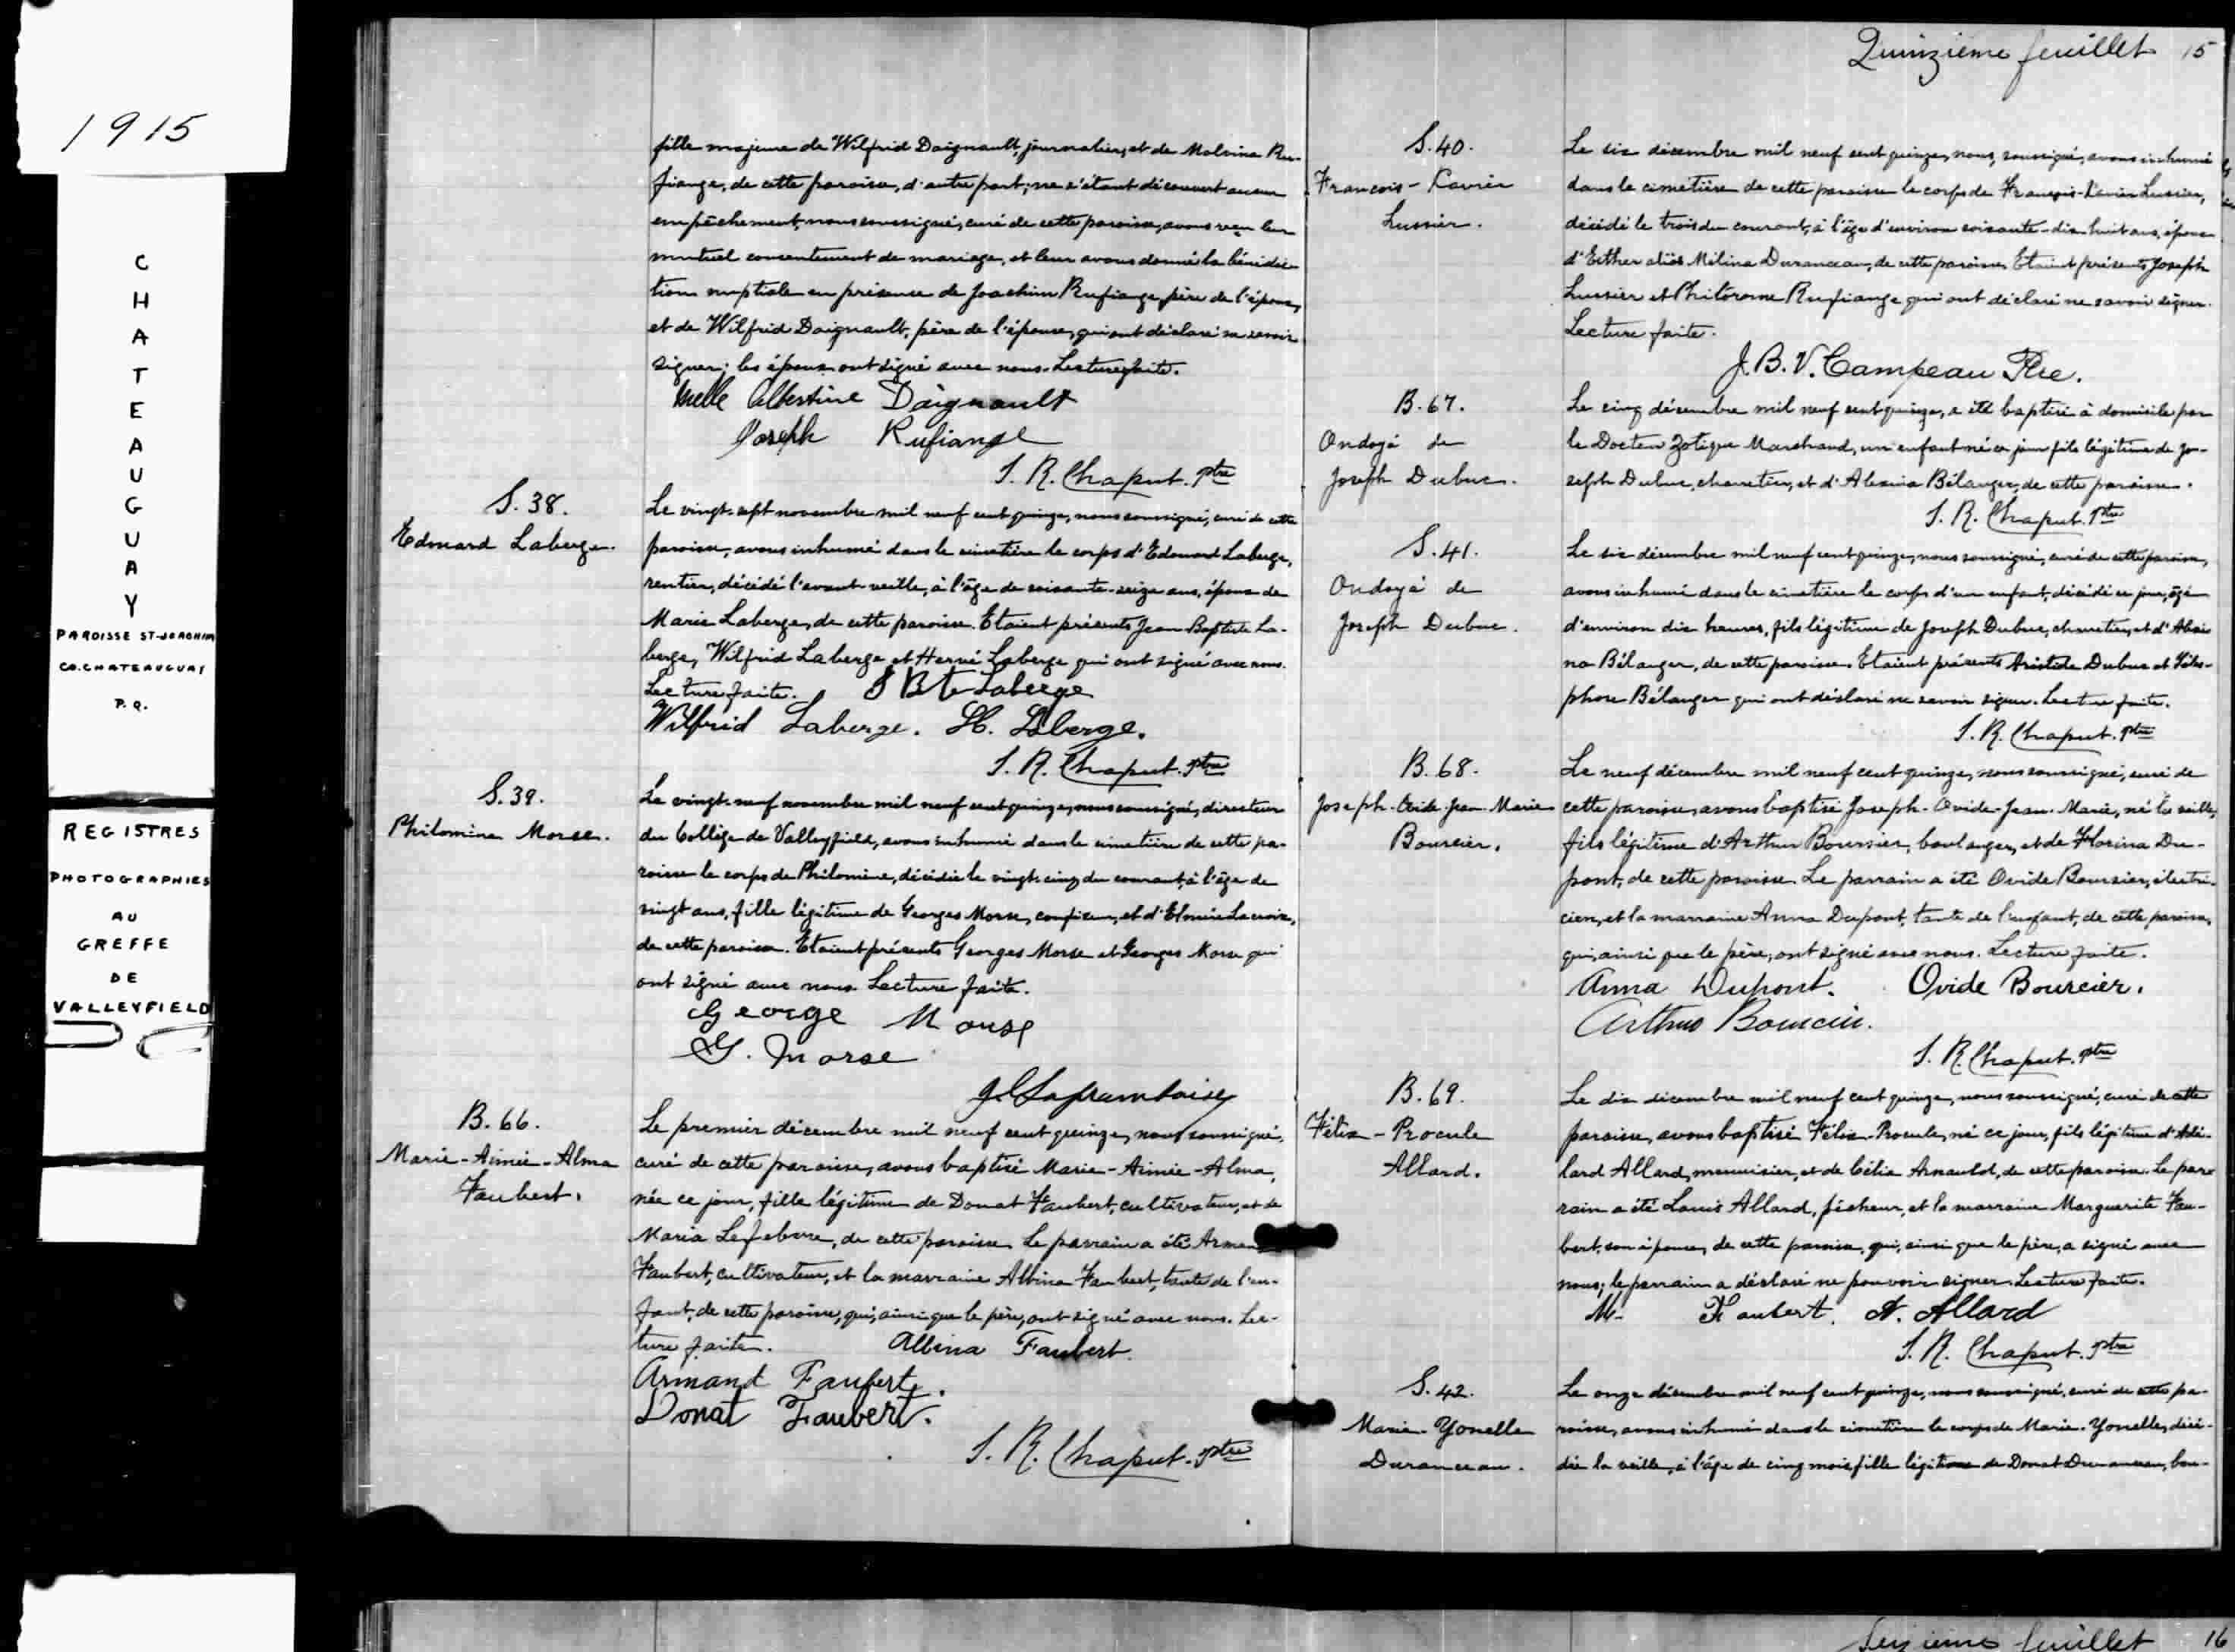 1915
CHATEAUGUAY
PAROISSE ST-JOACHIM
CO. CHATEAUGUAY
P.Q.
REGISTRES
PHOTOGRAPHIÉS
AU
GREFFE
DE
VALLEYFIELD
fille majeure de Wilfrid Daignault, journalier, et de Malvina Ru-
fiange, de cette paroisse, d'autre part; ne s'étant découvert aucun
empêchement, nous soussigné, curé de cette paroisse, avons reçu leur
mutuel consentement de mariage, et leur avons donné la bénédic-
tion nuptiale en présence de Joachim Rufiange, père de l'époux,
et de Wilfrid Daignault, père de l'épouse, qui ont déclaré ne savoir
signer; les époux ont signé avec nous. Lecture faite.
Melle Albertine Daignault
Joseph Rufiange
S. R. Chaput. ptre
S. 38.
Edouard Laberge.
Le vingt-sept novembre mil neuf cent quinze, nous soussigné, curé de cette
paroisse, avons inhumé dans le cimetière le corps d'Edouard Laberge,
rentier, décédé l'avant-veille, à l'âge de soixante-seize ans, époux de
Marie Laberge, de cette paroisse. Etaient présents Jean Baptiste La-
berge, Wilfrid Laberge et Hervé Laberge qui ont signé avec nous.
Lecture faite. J Bte Laberge
Wilfrid Laberge. H. Laberge.
S. R. Chaput. ptre
S. 39.
Philomine Morse.
Le vingt-neuf novembre mil neuf cent quinze, nous soussigné, directeur
du Collège de Valleyfield, avons inhumé dans le cimetière de cette pa-
roisse le corps de Philomine, décédée le vingt-cinq du courant, à l'âge de
vingt ans, fille légitime de Georges Morse, confiseur, et d'Elmire Lacroix,
de cette paroisse. Etaient présents Georges Morse et Georges Morse qui
ont signé avec nous. Lecture faite.
George Morse
G. Morse
J L Laframboise
B. 66.
Marie-Aimée-Alma
Faubert.
Le premier décembre mil neuf cent quinze, nous soussigné,
curé de cette paroisse, avons baptisé Marie-Aimée-Alma,
née ce jour, fille légitime de Donat Faubert, cultivateur, et de
Maria Lefebvre, de cette paroisse. Le parrain a été Arman
Faubert, cultivateur, et la marraine Albina Faubert, tante de l'en-
fant, de cette paroisse, qui, ainsi que le père, ont signé avec nous. Lec-
ture faite. Albina Faubert.
Armand Faubert.
Donat Faubert.
S. R. Chaput. ptre
Quinzième feuillet 15
S. 40.
François-Xavier
Lussier.
Le six décembre mil neuf cent quinze, nous, soussigné, avons inhumé
dans le cimetière de cette paroisse le corps de François-Xavier Lussier,
décédé le trois du courant, à l'âge d'environ soixante-dix-huit ans, époux
d'Esther alias Mélina Duranceau, de cette paroisse. Etaient présents Joseph
Lussier et Philorome Rufiange qui ont déclaré ne savoir signer.
Lecture faite.
J. B. V. Campeau Ptre.
B. 67.
Ondoyé de
Joseph Dubuc.
Le cinq décembre mil neuf cent quinze, a été baptisé à domicile par
le Docteur Zotique Marchand, un enfant né ce jour fils légitime de Jo-
seph Dubuc, charretier, et d'Alexina Bélanger, de cette paroisse.
S. R. Chaput. ptre
S. 41.
Ondoyé de
Joseph Dubuc.
Le six décembre mil neuf cent quinze, nous soussigné, curé de cette paroisse,
avons inhumé dans le cimetière le corps d'un enfant, décédé ce jour, âgé
d'environ dix heures, fils légitime de Joseph Dubuc, charretier, et d'Alexi-
na Bélanger, de cette paroisse. Etaient présents Aristide Dubuc et Téles-
phore Bélanger qui ont déclaré ne savoir signer. Lecture faite.
S. R. Chaput. ptre
B. 68.
Joseph-Ovide-Jean-Marie
Bourcier.
Le neuf décembre mil neuf cent quinze, nous soussigné, curé de
cette paroisse, avons baptisé Joseph-Ovide-Jean-Marie, né la veille,
fils légitime d'Arthur Boursier, boulanger, et de Florina Du-
pont, de cette paroisse. Le parrain a été Ovide Boursier, électri-
cien, et la marraine Anna Dupont, tante de l'enfant, de cette paroisse,
qui, ainsi que le père, ont signé avec nous. Lecture faite.
Anna Dupont. Ovide Bourcier.
Arthur Bourcier.
S. R. Chaput. ptre
B. 69.
Félix-Procule
Allard.
Le dix décembre mil neuf cent quinze, nous soussigné, curé de cette
paroisse, avons baptisé Félix-Procule, né ce jour, fils légitime d'Adé-
lard Allard, menuisier, et de Célia Arnauld, de cette paroisse. Le par-
rain a été Louis Allard, pêcheur, et la marraine Marguerite Fau-
bert, son épouse, de cette paroisse, qui, ainsi que le père, a signé avec
nous; le parrain a déclaré ne pouvoir signer. Lecture faite.
M. Faubert. A. Allard
S. R. Chaput. ptre
S. 42.
Marie-Yonelle
Duranceau.
Le onze décembre mil neuf cent quinze, nous soussigné, curé de cette pa-
roisse, avons inhumé dans le cimetière le corps de Marie-Yonelle, décé-
dée la veille, à l'âge de cinq mois, fille légitime de Donat Duranceau, bou-
Seizième feuillet 16